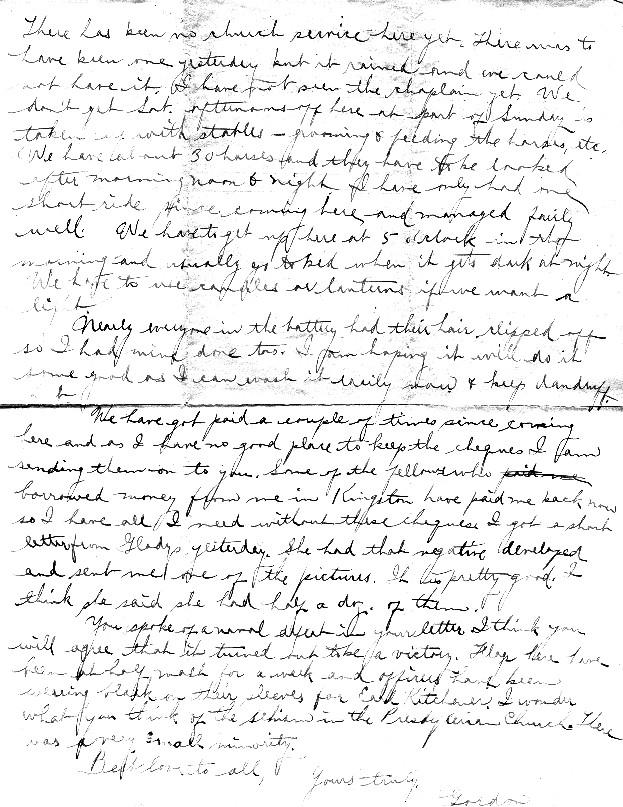 There has been no church service here yet. There was to
have been one yesterday but it rained and we could
not have it. I have not seen the chaplain yet. We
don't get Sat. afternoons off here at part of Sunday is
taken up with stables - grooming & feeding the horses, etc.
We have about 30 horses and they have to be looked
after morning noon & night. I have only had one
short ride since coming here and managed fairly
well. We have to get up here at 5 o'clock in the
morning and usually go to bed when it gets dark at night
We have to use candles or lanterns if we want a
light.
Nearly everyone in the battery had their hair clipped off
so I had mine done too. I am hoping it will do it
some good as I can wash it easily now & keep dandruff
We have got paid a couple of times since coming
here and as I have no good place to keep the cheques I am
sending them on to you. Some of the fellows who paid me
borrowed money from me in Kingston have paid me back now
so I have all I need without these cheques. I got a short
letter from Gladys yesterday. She had that negative developed
and sent me one of the pictures. It is pretty good. I
think she said she had half a doz. of them.
You spoke of a naval defeat in your letter. I think you
will agree that it turned out to be a victory. Flags here have
been at half mast for a week and officers have been
wearing black on their sleeves for Earl Kitchener. I wonder
what you think of the schism in the Presbyterian Church. There
was a very small minority.
Best love to all,
Yours truly,
Gordon